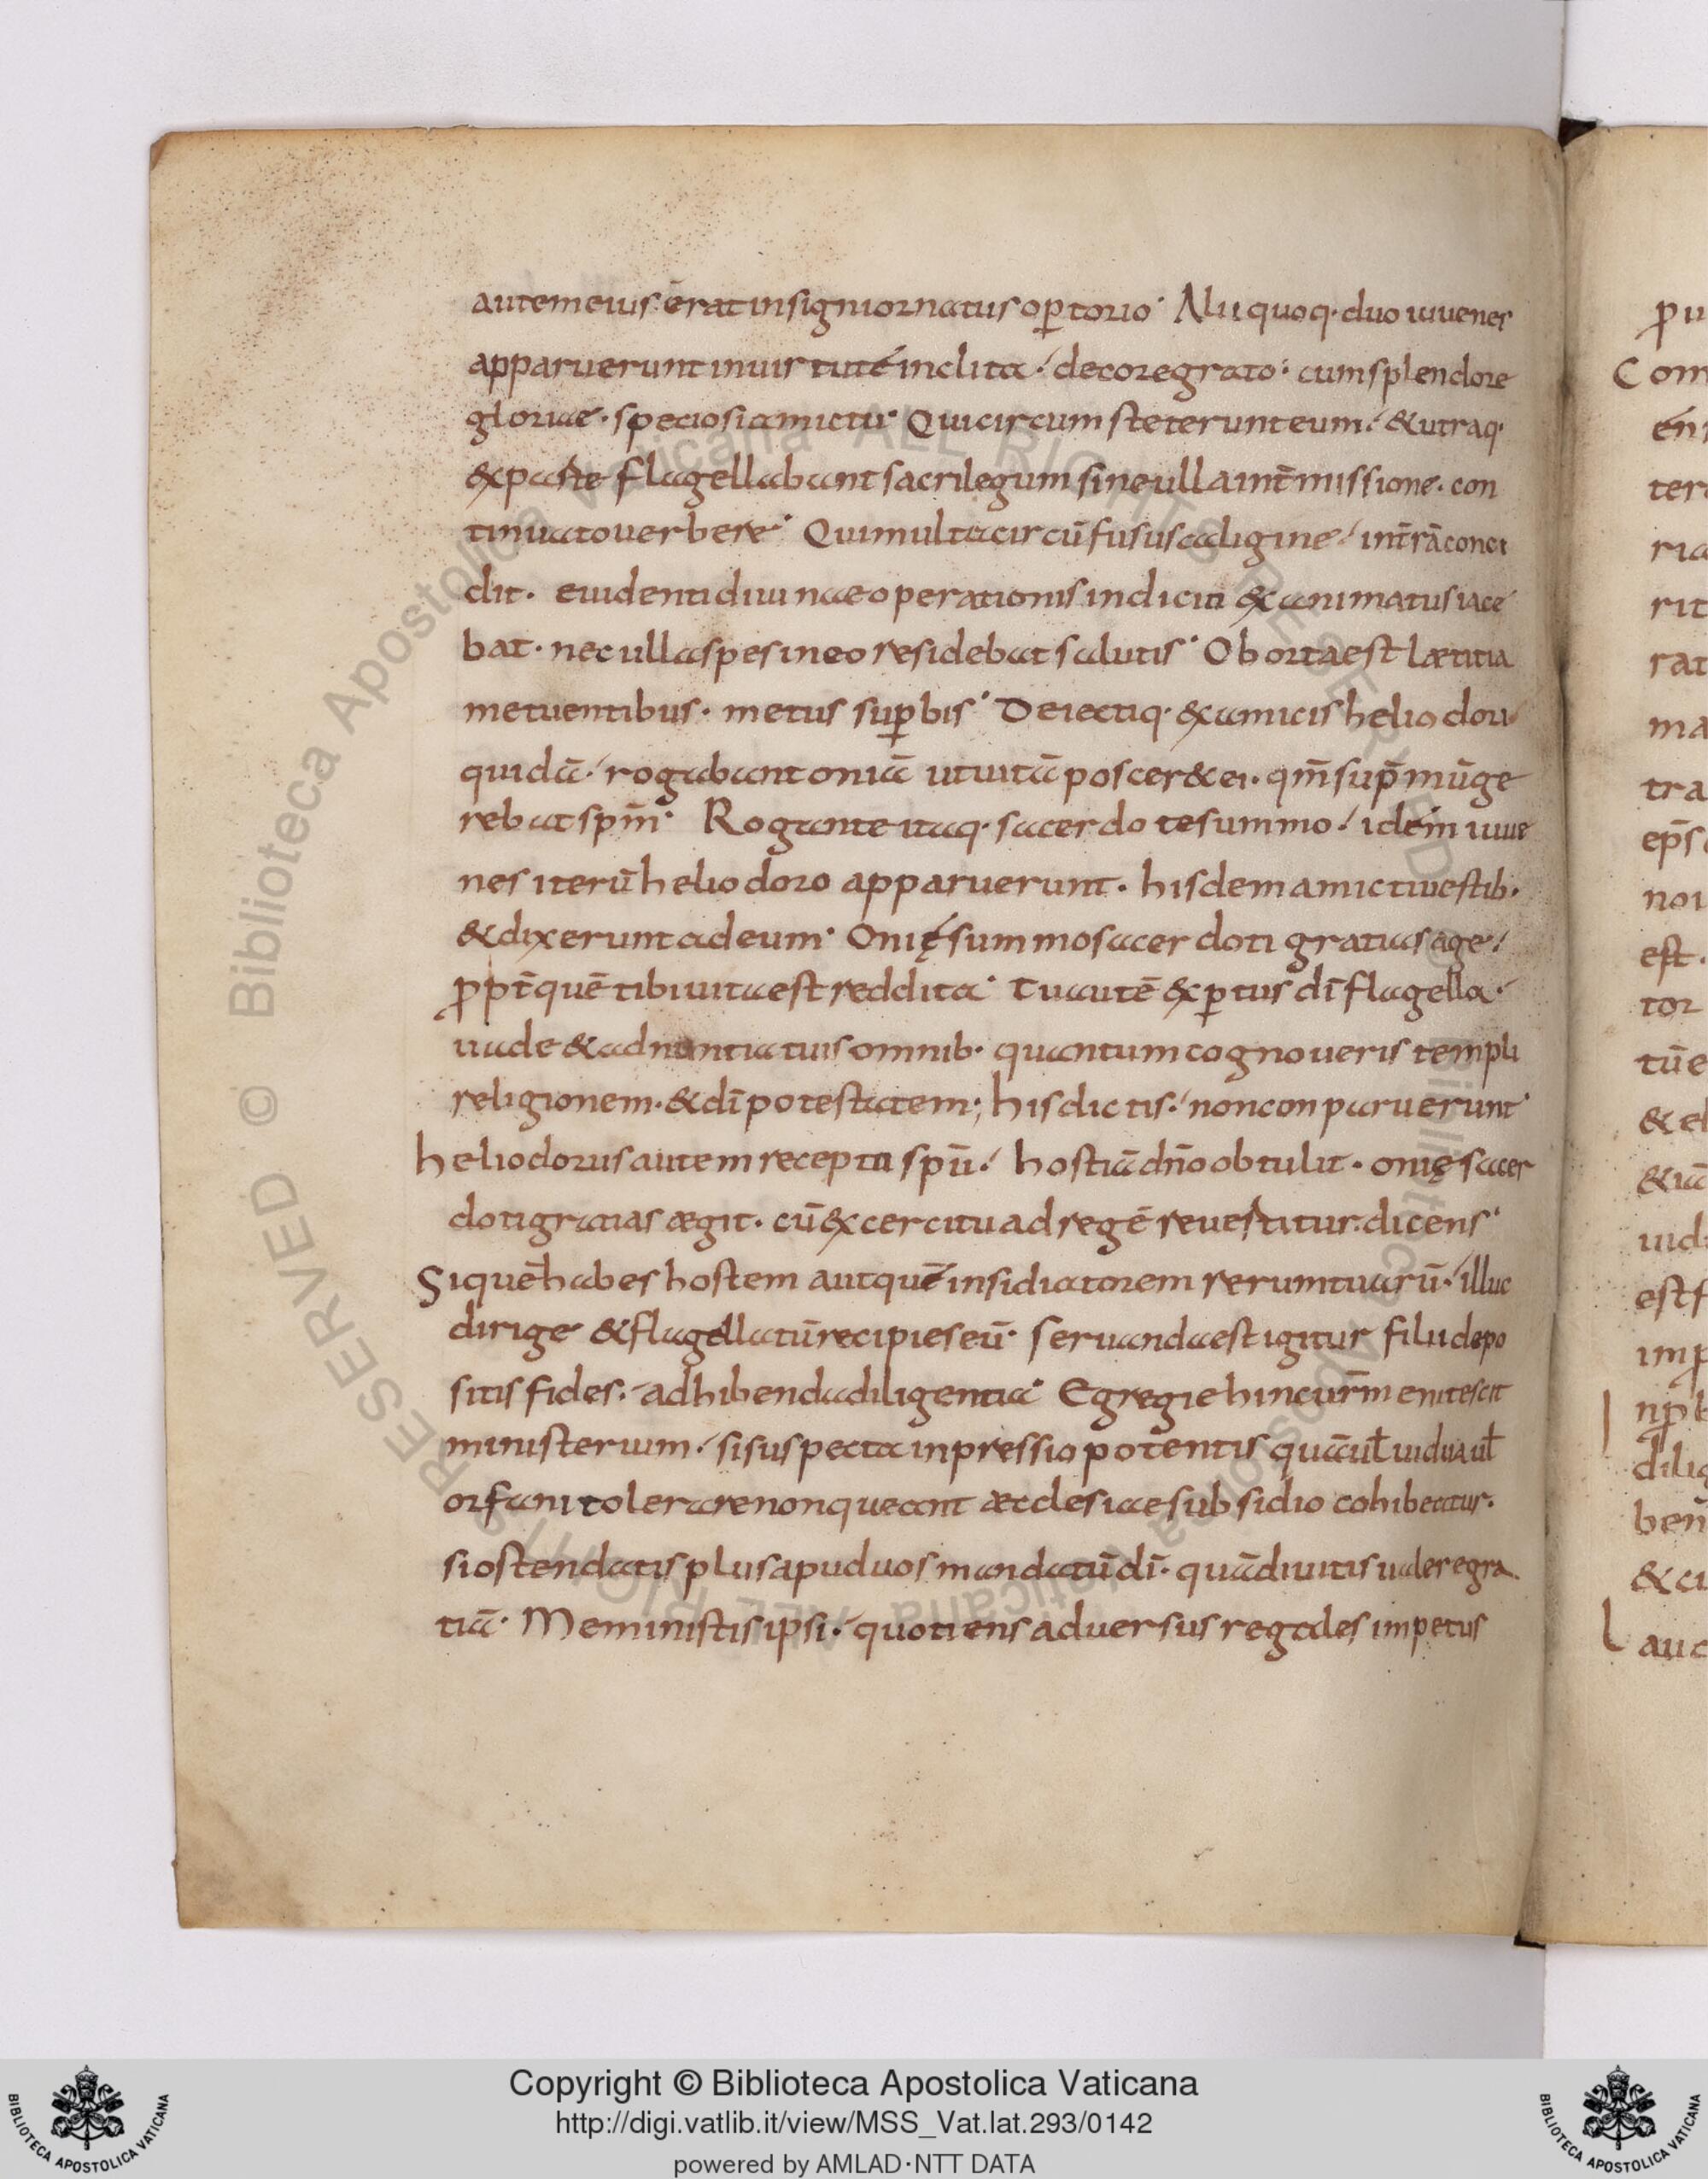 autem eius erat insigni ornatus op̱torio· Alii quoq· duo iuuenes
apparuerunt in uirtute inclita· decore grato· cum splendore
gloriae· speciosi amictu· Qui circumsteterunt eum· & utraq·
ex parte flagellabant sacrilegum sine ulla int̄missione· con
tinuato uerbere· Qui multa circū fusus caligine· in t̄rā conci
dit· euidenti diuinae operationis indicio exanimatus iace
bat· nec ulla spes in eo residebat salutis· Oborta est lætitia
metuentibus· metus sup̱bis· Deiectiq· ex amicis heliodori
quidā· rogabant oniā ut uitā poscer& ei· qm̄ sup̄mū ge
rebat spm̄· Rogante itaq· sacerdote summo· idem iuue
nes iterū heliodoro apparuerunt· hisdem amicti uestib·
& dixerunt ad eum· Onię summo sacerdoti gratias age·
ꝓpt̄ quē tibi uita est reddita· Tu autē exp̱tus dī flagella·
uade & adnuntia tuis omnib· quantum cognoueris templi
religionem· & dī potestatem; his dictis· non conparuerunt·
heliodorus autem recepto spū· hostiā dn̄o obtulit· onię sacer
doti gratias ægit· cū excercitu ad regē reuertitur· dicens·
Si quē habes hostem aut quē insidiatorem rerum tuarū· illuc
dirige & flagellatū recipies eū· Seruanda est igitur filii depo
sitis fides· adhibenda diligentia· Egregie hinc ur̄m enitescit
ministerium· si suspecta inpressio potentis quā ul̄ uidua ul̄
orfani tolerare non queant æcclesiae subsidio cohibeatur·
si ostendatis plus apud uos mandatū dī· quā diuitis ualere gra
tiā· Meministis ipsi· quotiens aduersus regales impetus
Copyright © Biblioteca Apostolica Vaticana
http://digi.vatlib.it/view/MSS_Vat.lat.293/0142
powered by AMLAD·NTT DATA